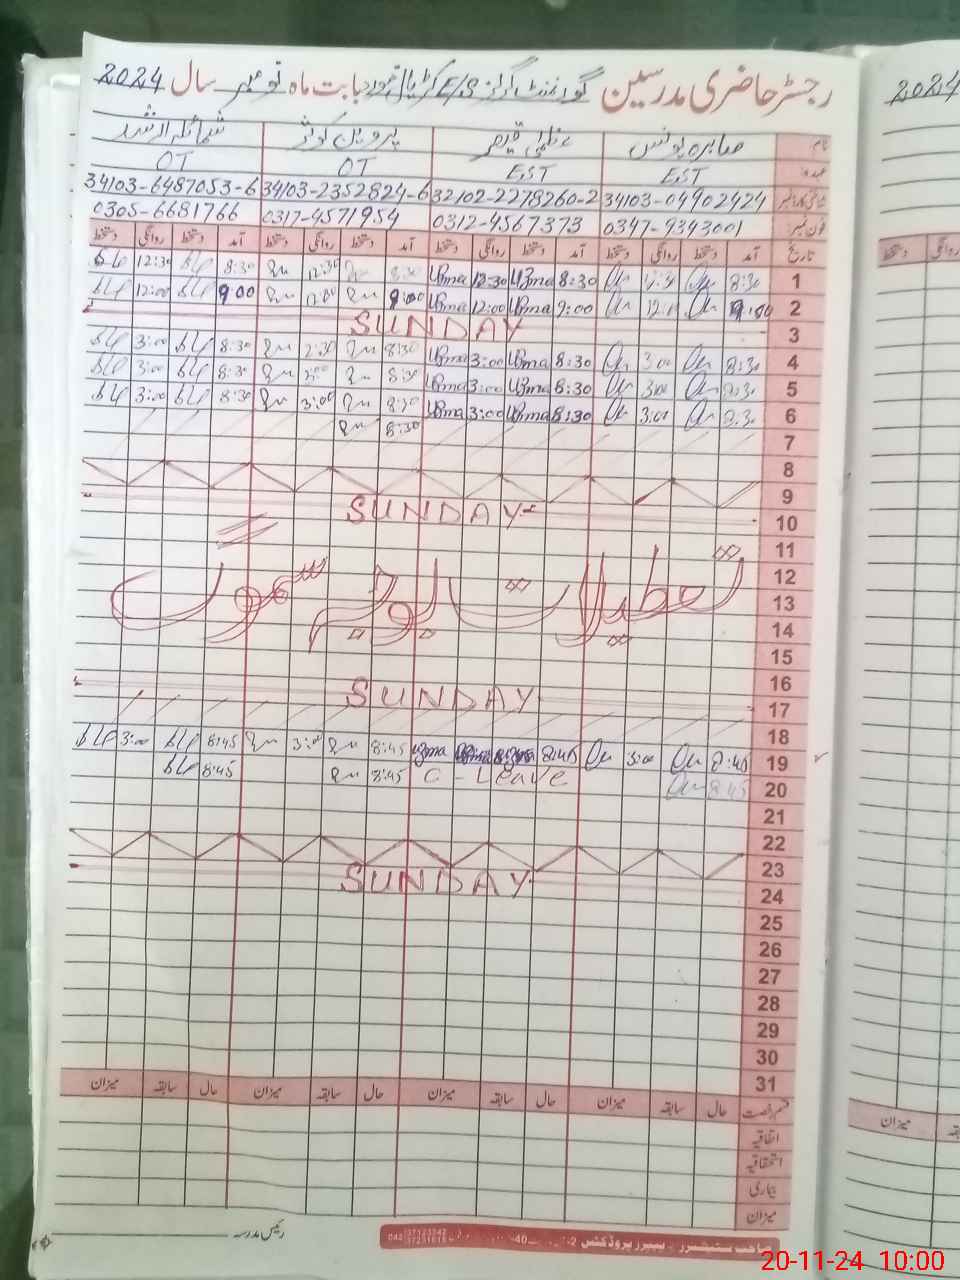 رجسٹر حاضری مدرسین گورنمنٹ گرلز E/S بابت ماہ نومبر سال 2024
نام صابرہ یونس عظمیٰ قیصر پروین کوثر شمائلہ ارشد
عہدہ EST EST OT OT
34103-04902424 32102-2278260-2 34103-2352824-6 34103-6487053-6
فون نمبر 0347-9343001 0312-4567373 0317-4571954 0305-6681766
تاریخ آمد دستخط روانگی دستخط آمد دستخط روانگی دستخط آمد دستخط روانگی دستخط آمد دستخط روانگی دستخط
1 8:30 8:30 12:30 8:30 12:30 8:30 12:30
2 9:00 9:00 12:00 9:00 12:00 9:00 12:00
3 SUNDAY
4 8:30 3:00 8:30 3:00 8:30 2:30 8:30 3:00
5 8:30 3:00 8:30 3:00 8:30 3:00 8:30 3:00
6 8:30 3:00 8:30 3:00 8:30 3:00 8:30 3:00
7 8:30
8
9
10 SUNDAY
11
12
13 تعطیلات بوجہ سموگ
14
15
16
17 SUNDAY
18
19 8:45 3:00 8:45 8:45 3:00 8:45 3:00
20 8:45 C-Leave 8:45 8:45
21
22
23
24 SUNDAY
25
26
27
28
29
30
31
قسم رخصت حال سابقہ میزان حال سابقہ میزان حال سابقہ میزان حال سابقہ میزان
اتفاقیہ
استحقاقیہ
بیماری
میزان
رئیس مدرسہ
042 37123342 37231618
20-11-24 10:00
2024
روانگی دستخط
میزان